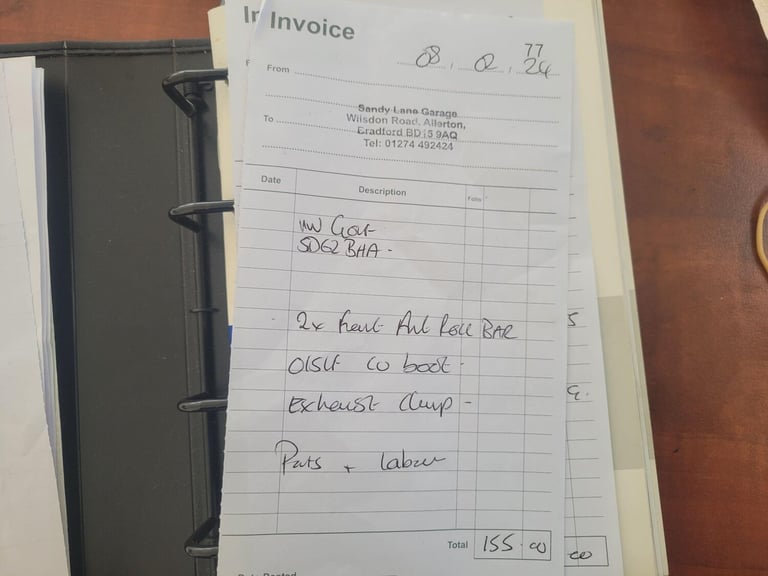 In Invoice
77
08 . 02 . 24
F From
Sandy Lane Garage
Wilsdon Road, Allerton,
To Bradford BD15 9AQ
Tel: 01274 492424
Date Description Folio
VW Golf
SD62 BHA -
2x front Anti Roll BAR
S
O/S/F CV boot -
Exhaust Clamp -
Parts + labour
Total 155.00
00